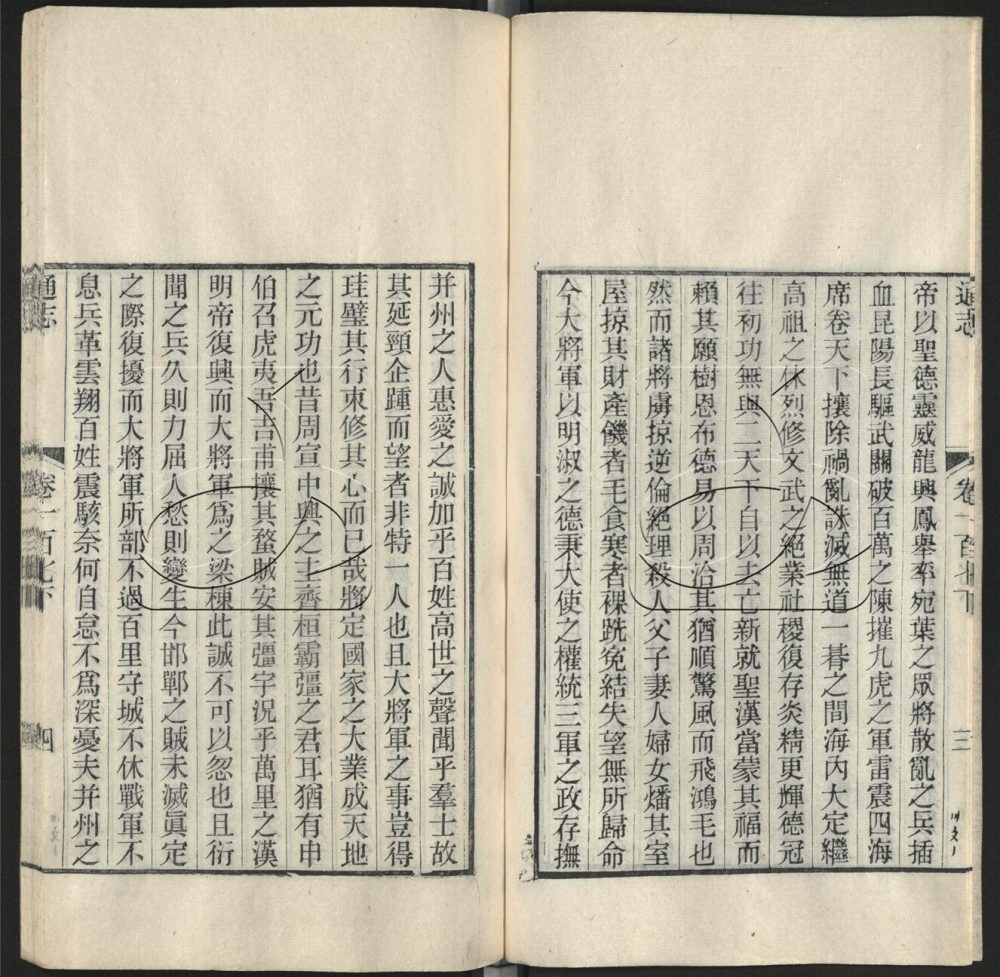 通志
卷一百七下
三
帝以聖德靈威龍興鳳舉率宛葉之眾將散亂之兵插
血昆陽長驅武關破百萬之陳摧九虎之軍雷震四海
席卷天下攘除禍亂誅滅無道一朞之間海內大定繼
高祖之休烈修文武之絕業社稷復存炎精更輝德冠
往初功無與二天下自以去亡新就聖漢當蒙其福而
賴其願樹恩布德易以周洽其猶順驚風而飛鴻毛也
然而諸將虜掠逆倫絕理殺人父子妻人婦女燔其室
屋掠其財產饑者毛食寒者裸跣冤結失望無所歸命
今大將軍以明淑之德秉大使之權統三軍之政存撫
并州之人惠愛之誠加乎百姓高世之聲聞乎羣士故
其延頸企踵而望者非特一人也且大將軍之事豈得
珪璧其行束修其心而已哉將定國家之大業成天地
之元功也昔周宣中興之主齊桓霸彊之君耳猶有申
伯召虎夷吾吉甫攘其蝥賊安其彊宇況乎萬里之漢
明帝復興而大將軍為之梁棟此誠不可以忽也且衍
聞之兵久則力屈人愁則變生今邯鄲之賊未滅眞定
之際復擾而大將軍所部不過百里守城不休戰軍不
息兵革雲翔百姓震駭奈何自怠不為深憂夫并州之
通志
卷一百七下
四